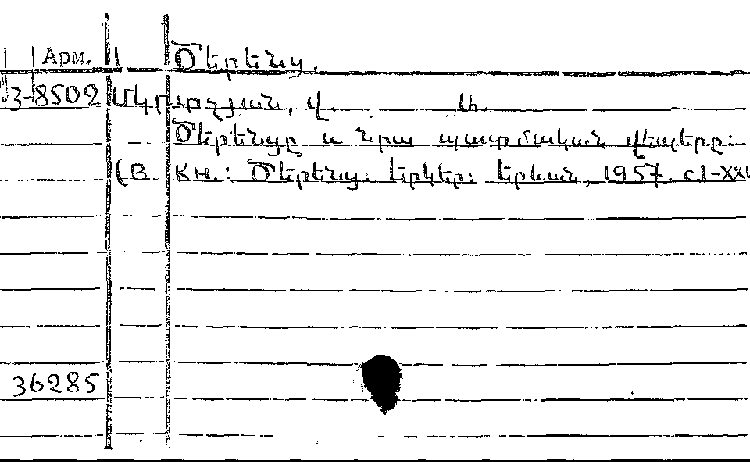 Арм. Ծերենց.
3-8502 Մկրտչյան, Վ. և.
Ծերենցը և նրա պատմական վեպերը:
(В кн.: Ծերենց: Երկեր: Երևան, 1957. с. I-XXI
36285